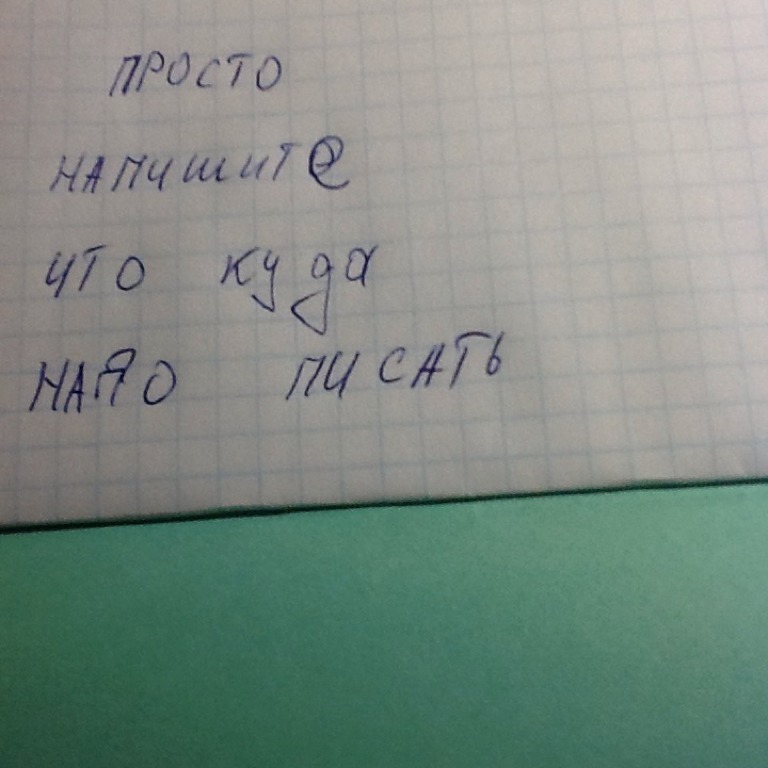 ПРОСТО
НАПИШИТЕ
ЧТО КУДА
НАДО ПИСАТЬ